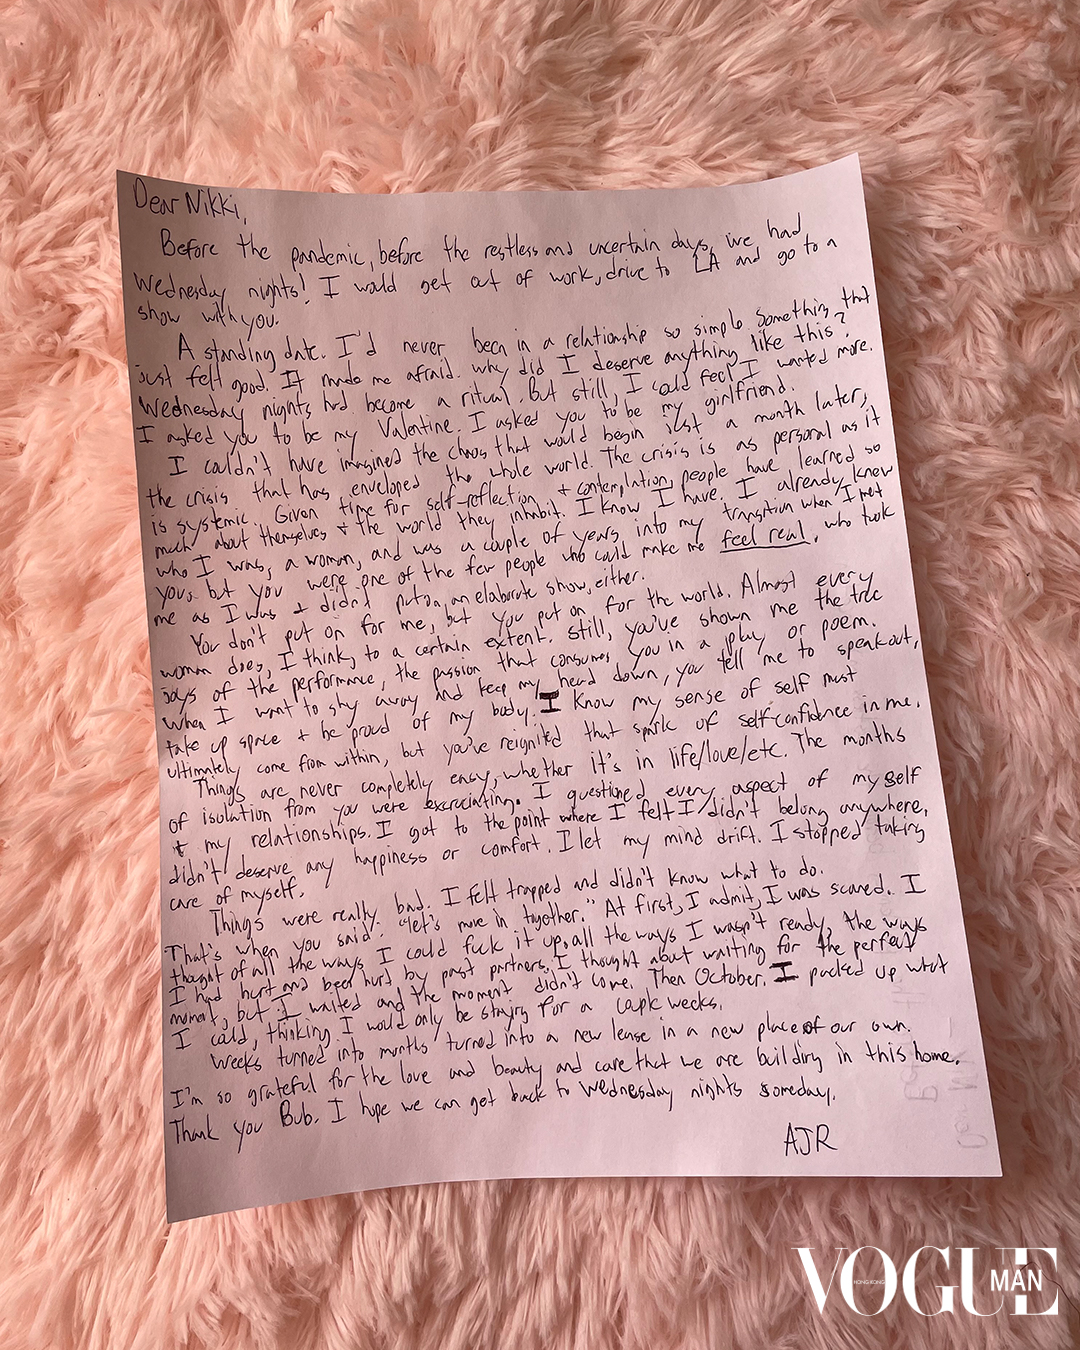 Dear Nikki,
Before the pandemic, before the restless and uncertain days, we had
Wednesday nights! I would get out of work, drive to LA and go to a
show with you.
A standing date. I'd never been in a relationship so simple something that
just felt good. It made me afraid. why did I deserve anything like this?
Wednesday nights had become a ritual. But still, I could feel I wanted more.
I asked you to be my Valentine. I asked you to be my girlfriend.
I couldn't have imagined the chaos that would begin just a month later,
the crisis that has enveloped the whole world. The crisis is as personal as it
is systemic. Given time for self-reflection + contemplation, people have learned so
much about themselves + the world they inhabit. I know I have. I already knew
who I was, a woman, and was a couple of years into my transition when I met
you, but you were one of the few people who could make me feel real, who took
me as I was + didn't put on an elaborate show, either.
You don't put on for me, but you put on for the world. Almost every
woman does, I think, to a certain extent. Still, you've shown me the true
joys of the performance, the passion that consumes you in a play or poem.
When I want to shy away and keep my head down, you tell me to speak out,
take up space + be proud of my body. I know my sense of self must
ultimately come from within, but you've reignited that spark of self-confidence in me.
Things are never completely easy, whether it's in life/love/etc. The months
of isolation from you were excruciating. I questioned every aspect of myself
+ my relationships. I got to the point where I felt I didn't belong anywhere,
didn't deserve any happiness or comfort. I let my mind drift. I stopped taking
care of myself.
Things were really bad. I felt trapped and didn't know what to do.
That's when you said: "let's move in together." At first, I admit, I was scared. I
thought of all the ways I could fuck it up, all the ways I wasn't ready, the ways
I had hurt and been hurt by past partners. I thought about waiting for the perfect
moment, but I waited and the moment didn't come. Then October. I packed up what
I could, thinking I would only be staying for a couple weeks.
Weeks turned into months turned into a new lease in a new place of our own.
I'm so grateful for the love and beauty and care that we are building in this home.
Thank you Bub. I hope we can get back to Wednesday nights someday.
AJR
VOGUE
HONG KONG
MAN